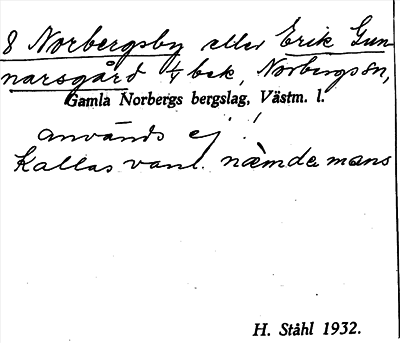 8 Norbergsby eller Erik Gun-
narsgård 1/4 bek, Norbergs sn,
Gamla Norbergs bergslag, Västm. l.
används ej!
Kallas vanl. nämdemans
H. Ståhl 1932.